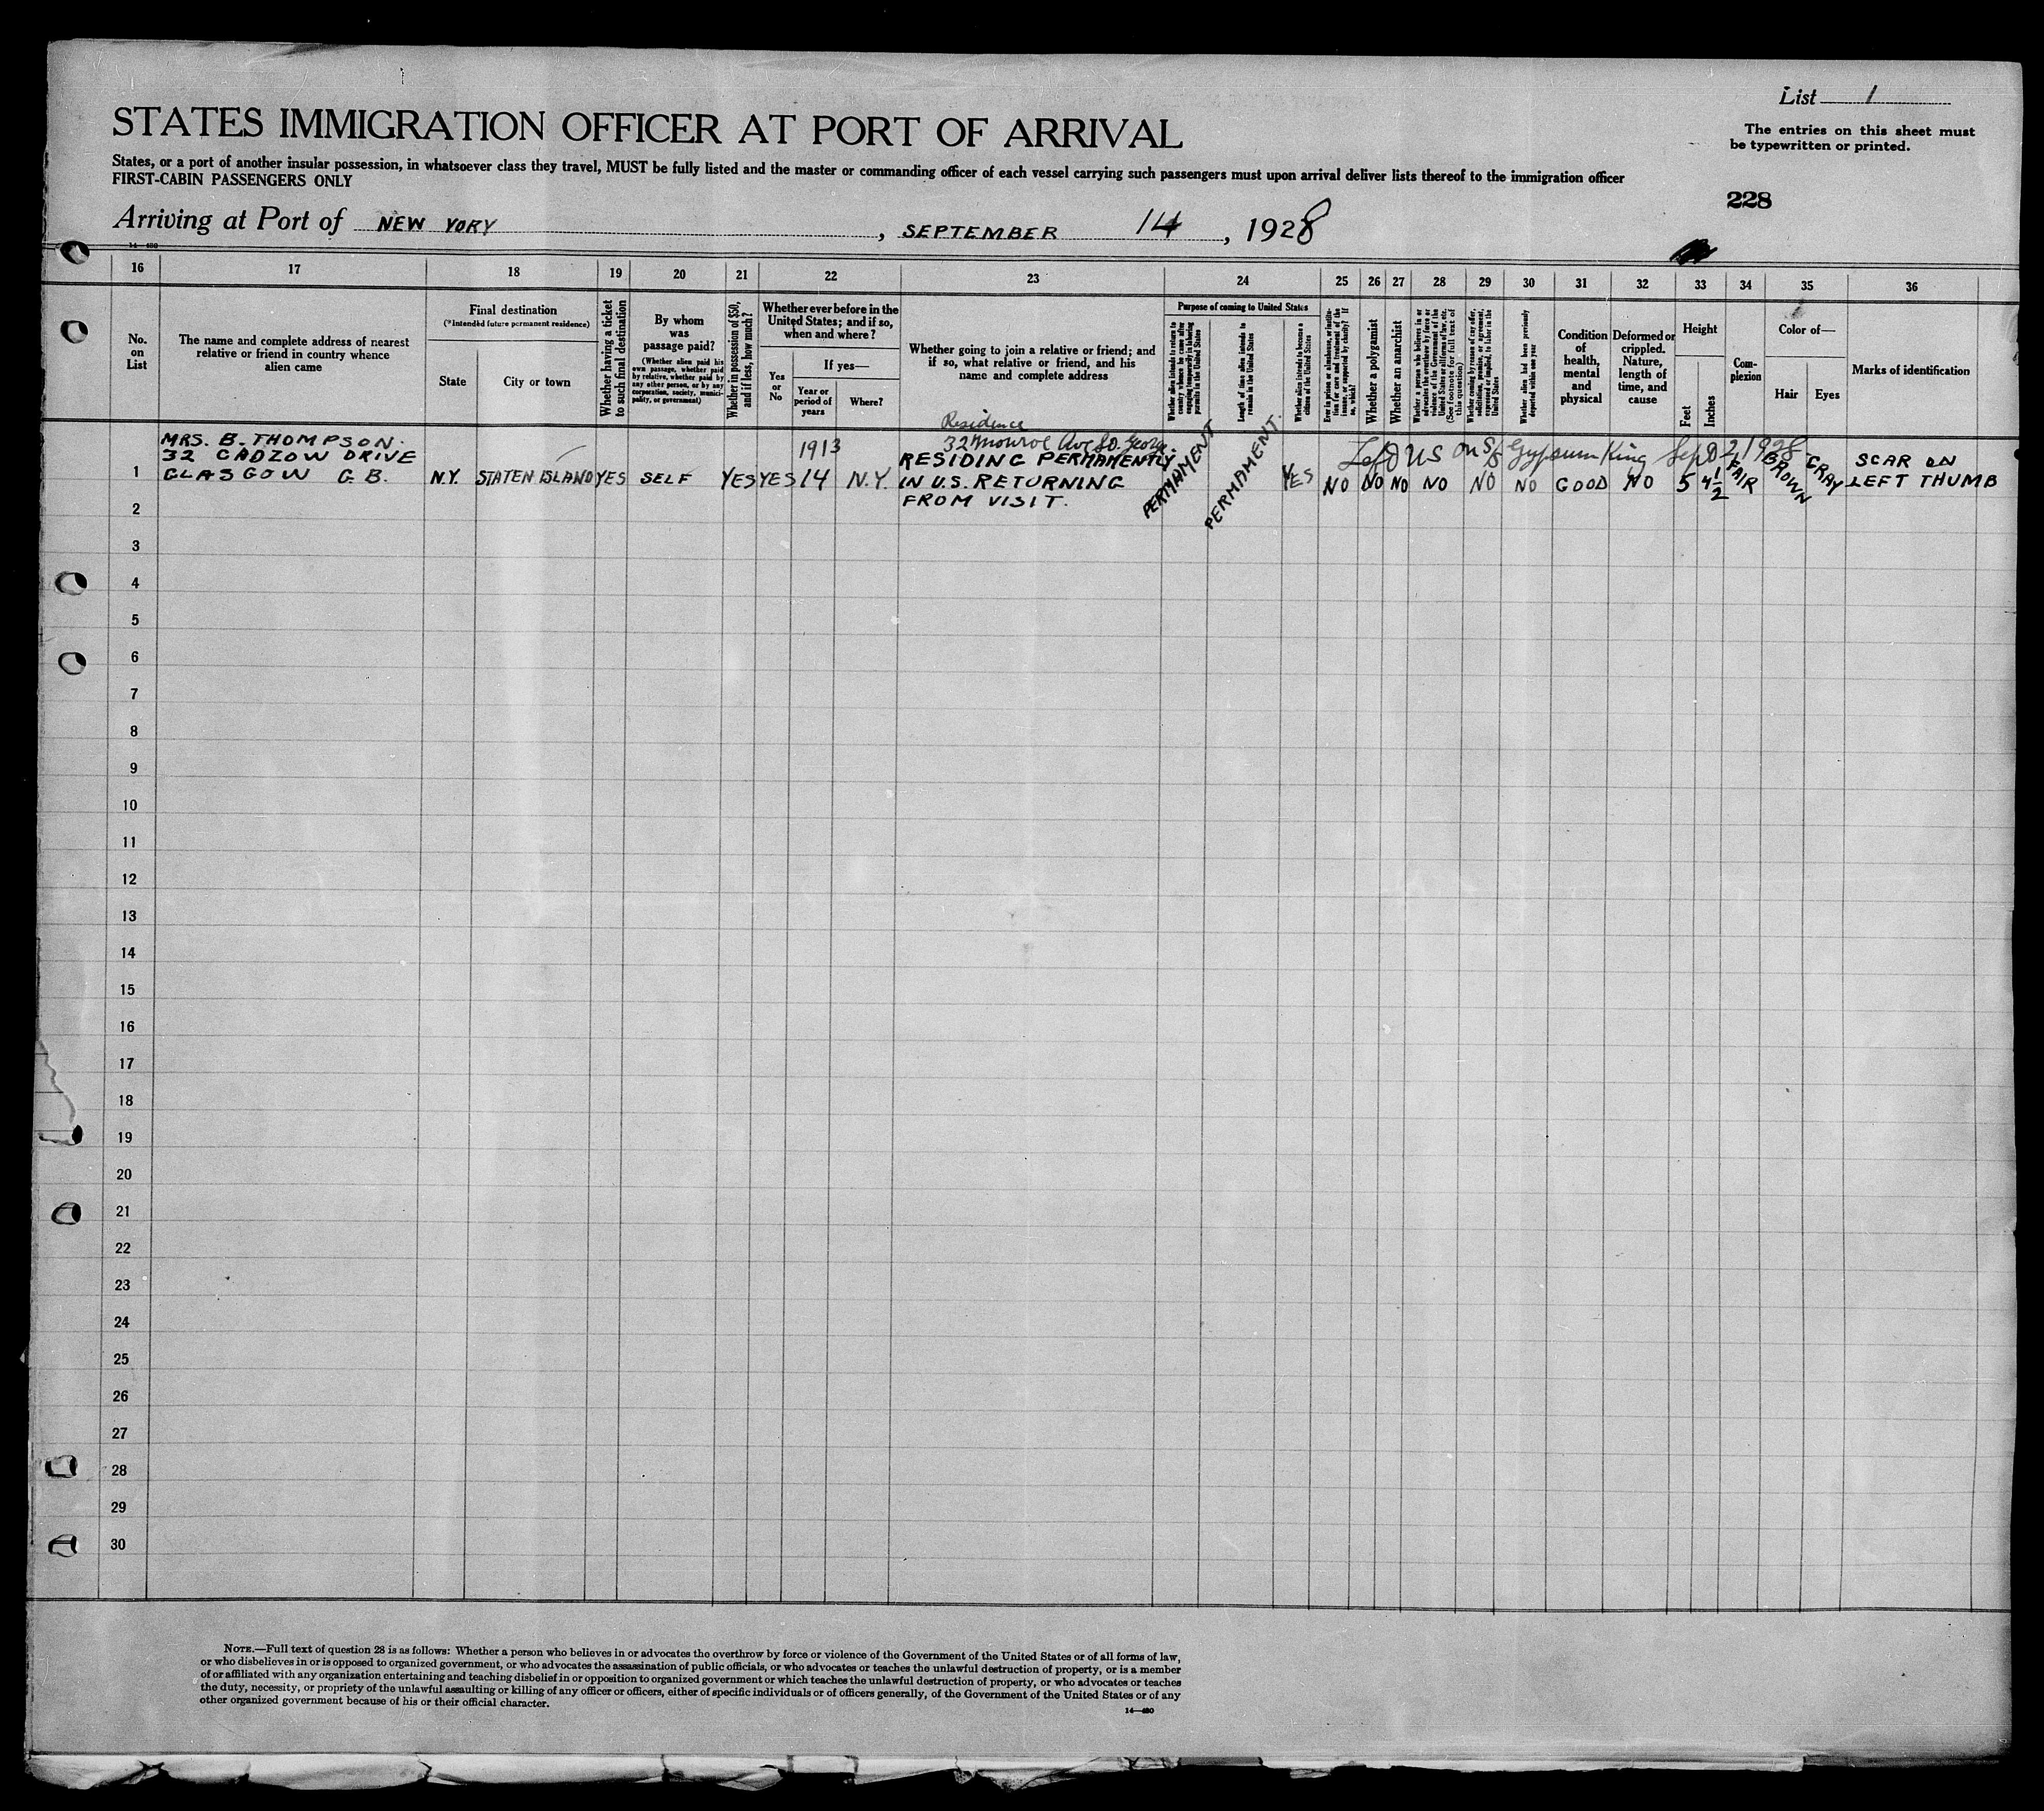 List 1
STATES IMMIGRATION OFFICER AT PORT OF ARRIVAL
The entries on this sheet must
be typewritten or printed.
States, or a port of another insular possession, in whatsoever class they travel, MUST be fully listed and the master or commanding officer of each vessel carrying such passengers must upon arrival deliver lists thereof to the immigration officer
FIRST-CABIN PASSENGERS ONLY
228
Arriving at Port of NEW YORY, SEPTEMBER 14, 1928
14—480
16 17 18 19 20 21 22 23 24 25 26 27 28 29 30 31 32 33 34 35 36
No.
on
List
The name and complete address of nearest
relative or friend in country whence
alien came
Final destination
(*Intended future permanent residence)
State
City or town
Whether having a ticket
to such final destination
By whom
was
passage paid?
(Whether alien paid his
own passage, whether paid
by relative, whether paid by
any other person, or by any
corporation, society, munici-
pality, or government)
Whether in possession of $50,
and if less, how much?
Whether ever before in the
United States; and if so,
when and where?
Yes
or
No
If yes—
Year or
period of
years
Where?
Whether going to join a relative or friend; and
if so, what relative or friend, and his
name and complete address
Purpose of coming to United States
Whether alien intends to return to
country whence he came after
engaging temporarily in laboring
pursuits in the United States
Length of time alien intends to
remain in the United States
Whether alien intends to become a
citizen of the United States
Ever in prison or almshouse, or institu-
tion for care and treatment of the
insane, or supported by charity? If
so, which?
Whether a polygamist
Whether an anarchist
Whether a person who believes in or
advocates the overthrow by force or
violence of the Government of the
United States or all forms of law, etc.
(See footnote for full text of
this question)
Whether coming by reason of any offer,
solicitation, promise, or agreement,
expressed or implied, to labor in the
United States
Whether alien had been previously
deported within one year
Condition
of
health,
mental
and
physical
Deformed or
crippled.
Nature,
length of
time, and
cause
Height
Feet
Inches
Com-
plexion
Color of—
Hair
Eyes
Marks of identification
Residence
32 Monroe Ave St. George
Left US on S/S Gypsum King Sept 2 1928
1
MRS. B. THOMPSON.
32 CADZOW DRIVE
GLASGOW G.B.
N.Y.
STATEN ISLAND
YES
SELF
YES
YES
1913
14
N.Y.
RESIDING PERMANENTLY.
IN U.S. RETURNING
FROM VISIT.
PERMAMENT
PERMAMENT.
YES
NO
NO
NO
NO
NO
NO
GOOD
NO
5
4 1/2
FAIR
BROWN
GRAY
SCAR ON
LEFT THUMB
2
3
4
5
6
7
8
9
10
11
12
13
14
15
16
17
18
19
20
21
22
23
24
25
26
27
28
29
30
NOTE.—Full text of question 28 is as follows: Whether a person who believes in or advocates the overthrow by force or violence of the Government of the United States or of all forms of law,
or who disbelieves in or is opposed to organized government, or who advocates the assassination of public officials, or who advocates or teaches the unlawful destruction of property, or is a member
of or affiliated with any organization entertaining and teaching disbelief in or opposition to organized government or which teaches the unlawful destruction of property, or who advocates or teaches
the duty, necessity, or propriety of the unlawful assaulting or killing of any officer or officers, either of specific individuals or of officers generally, of the Government of the United States or of any
other organized government because of his or their official character.
14—480